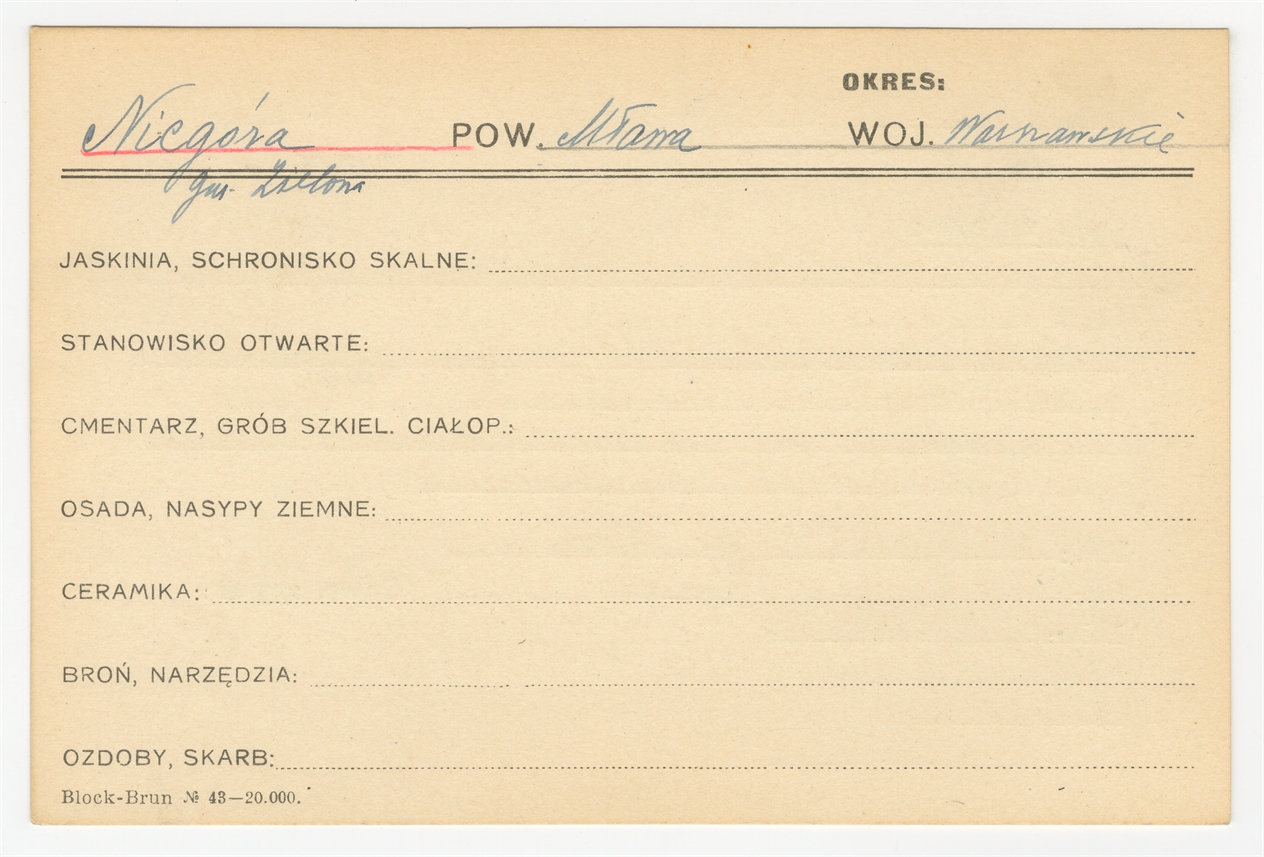 OKRES:
Niegóra POW. Mława WOJ. Warszawskie
gm. Zielona
JASKINIA, SCHRONISKO SKALNE:
STANOWISKO OTWARTE:
CMENTARZ, GRÓB SZKIEL. CIAŁOP.:
OSADA, NASYPY ZIEMNE:
CERAMIKA:
BROŃ, NARZĘDZIA:
OZDOBY, SKARB:
Block-Brun № 43—20.000.